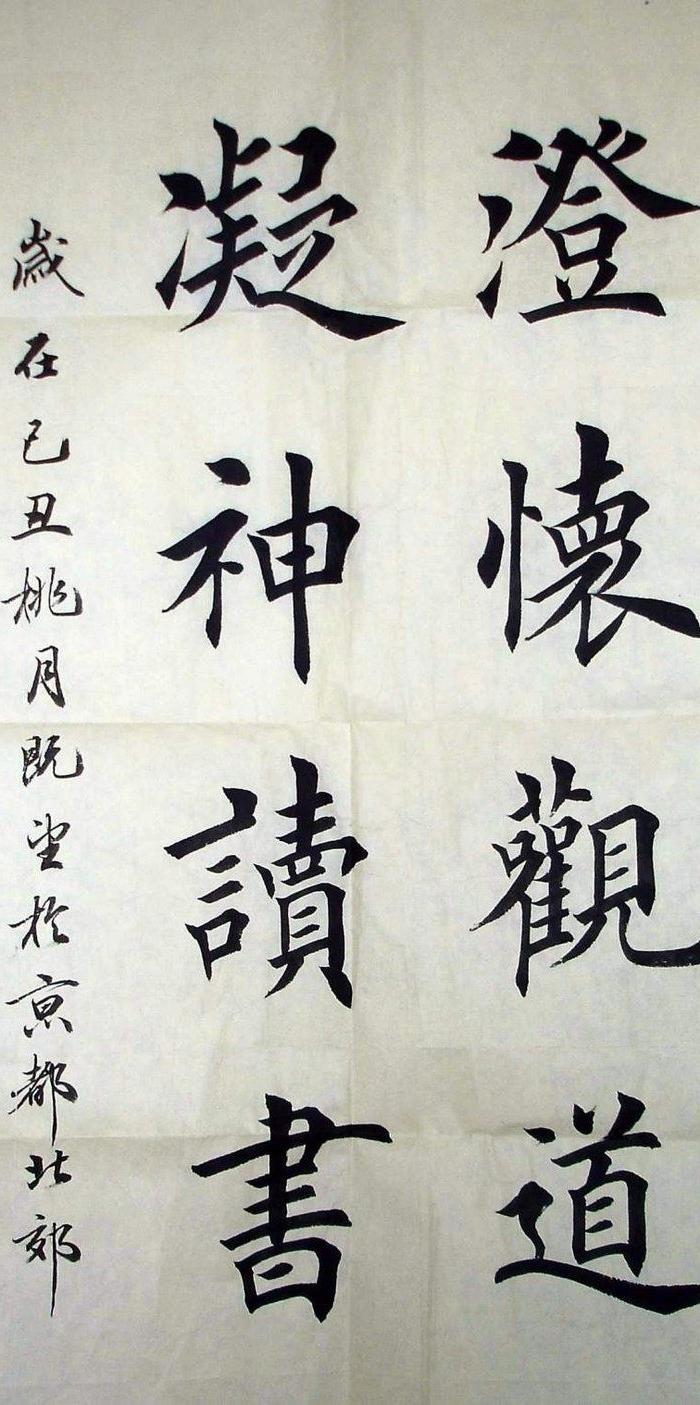 澄懷觀道
凝神讀書
歲在己丑桃月既望於京都北郊